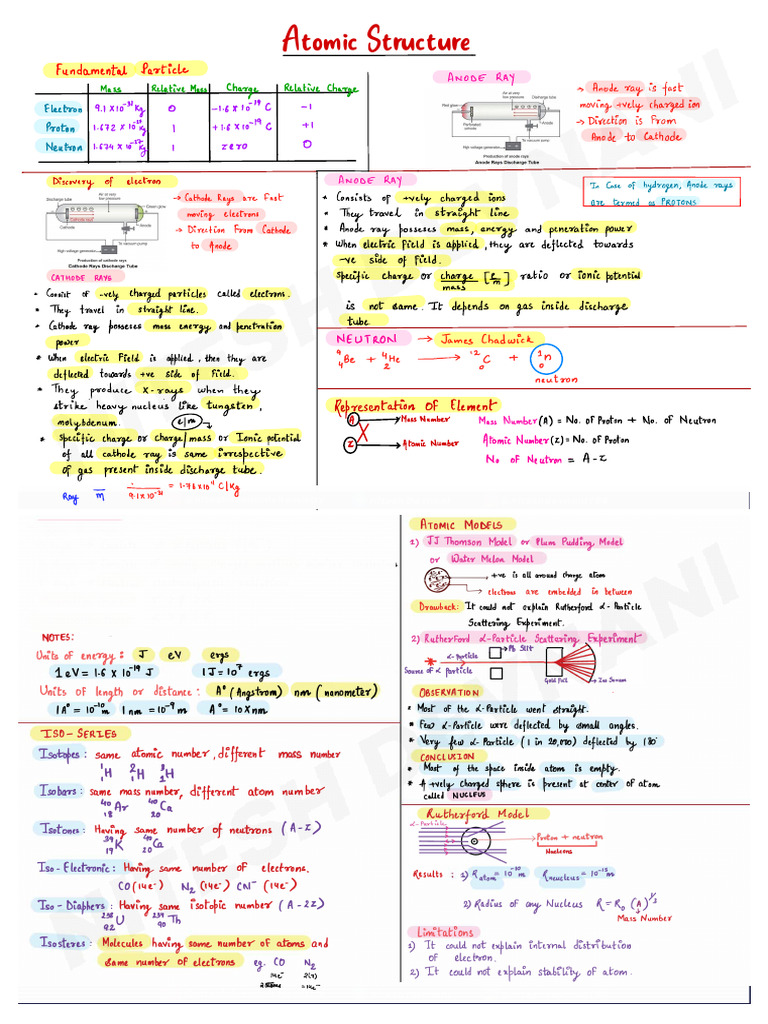 Atomic Structure
Fundamental Particle
Mass Relative Mass Charge Relative Charge
Electron 9.1 X 10⁻³¹ Kg 0 -1.6 X 10⁻¹⁹ C -1
Proton 1.672 X 10⁻²⁷ Kg 1 +1.6 X 10⁻¹⁹ C +1
Neutron 1.674 X 10⁻²⁷ Kg 1 zero 0
ANODE RAY
Air at very low pressure
Discharge tube
Red glow
Perforated cathode
Anode
To vacuum pump
High voltage generator
Production of anode rays
Anode Rays Discharge Tube
→ Anode ray is fast
moving +vely charged ion
→ Direction is From
Anode to Cathode
Discovery of electron
Air at very low pressure
Discharge tube
Green glow
Cathode rays
Cathode
Anode
To vacuum pump
High voltage generator
Production of cathode rays
Cathode Rays Discharge Tube
→ Cathode Rays are Fast
moving electrons
→ Direction From Cathode
to Anode
CATHODE RAYS
• Consist of -vely charged particles called electrons.
* They travel in straight line.
• Cathode ray posseses mass energy and penetration
power
* When electric Field is applied, then they are
deflected towards +ve side of Field.
* They produce X-rays when they
strike heavy nucleus like tungsten,
molybdenum.
e/m
* Specific charge or charge/mass or Ionic potential
of all cathode ray is same irrespective
of gas present inside discharge tube.
Ray
m
9.1x10⁻³¹ = 1.76 x 10¹¹ C/Kg
ANODE RAY
* Consists of +vely charged ions
• They travel in straight line
* Anode ray posseses mass, energy and peneration power
* When electric Field is applied, they are deflected towards
-ve side of Field.
Specific charge or charge/mass [e/m] ratio or ionic potential
is not same. It depends on gas inside discharge
tube.
In Case of hydrogen, Anode rays
are termed as PROTONS
NEUTRON → James Chadwick
⁹₄Be + ⁴₂He → ¹²₀C + ¹₀n
neutron
Representation Of Element
A → Mass Number
Z → Atomic Number
Mass Number (A) = No. of Proton + No. of Neutron
Atomic Number (Z) = No. of Proton
No of Neutron = A-Z
NOTES:
Units of energy: J eV ergs
1 eV = 1.6 X 10⁻¹⁹ J 1J = 10⁷ ergs
Units of length or distance: A° (Angstrom) nm (nanometer)
1A° = 10⁻¹⁰ m 1nm = 10⁻⁹ m A° = 10 X nm
ISO-SERIES
Isotopes: same atomic number, different mass number
¹₁H ²₁H ³₁H
Isobars: same mass number, different atom number
⁴⁰₁₈Ar ⁴⁰₂₀Ca
Isotones: Having same number of neutrons (A-Z)
³⁹₁₉K ⁴⁰₂₀Ca
Iso-Electronic: Having same number of electrons.
CO (14e⁻) N₂ (14e⁻) CN⁻ (14e⁻)
Iso-Diaphers: Having same isotopic number (A-2Z)
²³⁸₉₂U ²³⁴₉₀Th
Isosteres: Molecules having same number of atoms and
same number of electrons eg. CO N₂
14e⁻ 2(7)
2 atoms =14e⁻
ATOMIC MODELS
1) JJ Thomson Model or Plum Pudding Model
or Water Melon Model
+ve is all around charge atom
electrons are embedded in between
Drawback: It could not explain Rutherford α-Particle
Scattering Experiment.
2) Rutherford α-Particle Scattering Experiment
Pb Slit
α-particle
Source of α particle
Gold Foil
Zns Screen
OBSERVATION
* Most of the α-Particle went straight.
* Few α-Particle were deflected by small angles.
* Very few α-Particle (1 in 20,000) deflected by 180°
CONCLUSION
* Most of the space inside atom is empty.
* A +vely charged sphere is present at center of atom
called NUCLEUS
Rutherford Model
α-Particle
Proton + neutron
Nucleons
Results: 1) R atom = 10⁻¹⁰ m R neucleus = 10⁻¹⁵ m
2) Radius of any Nucleus R = R₀ (A)^1/3
Mass Number
Limitations
1) It could not explain internal distribution
of electron.
2) It could not explain stability of atom.